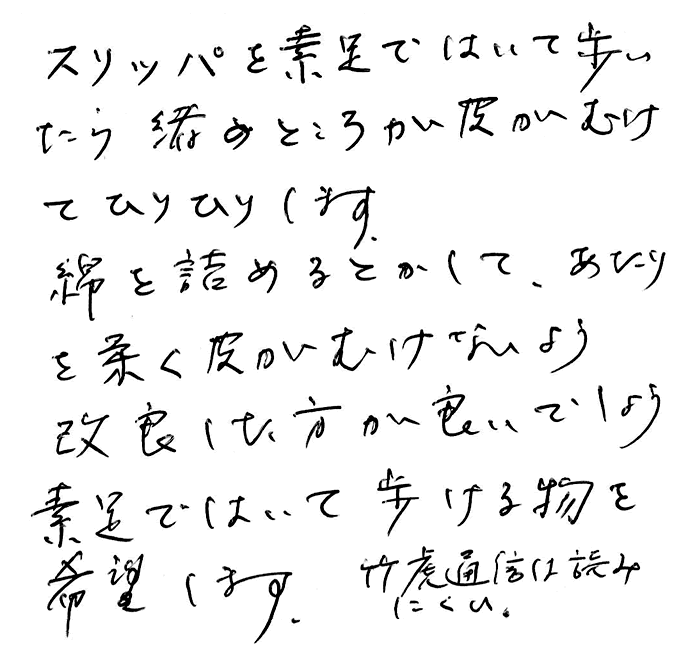 スリッパを素足ではいて歩い
たら緒のところが皮がむけ
てひりひりします.
綿を詰めるとかして、あたり
を柔く皮がむけないよう
改良した方が良いでしょう
素足ではいて歩ける物を
希望します.
竹虎通信は読み
にくい.